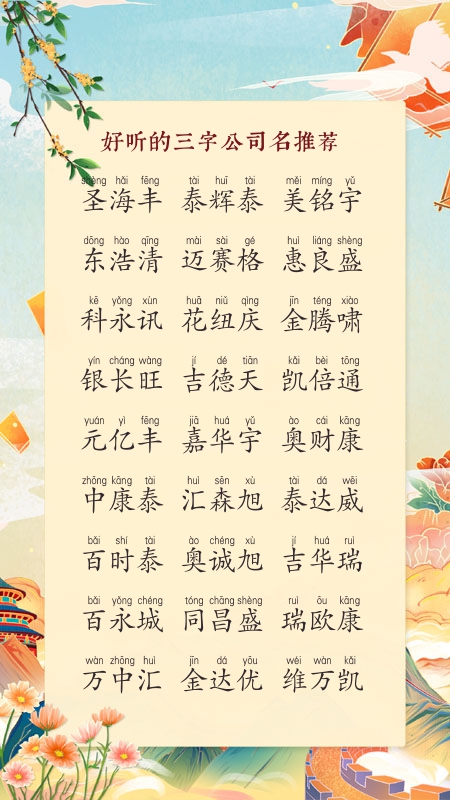 好听的三字公司名推荐
shèng hǎi fēng tài huī tài měi míng yǔ
圣海丰 泰辉泰 美铭宇
dōng hào qīng mài sài gé huì liáng shèng
东浩清 迈赛格 惠良盛
kē yǒng xùn huā niǔ qìng jīn téng xiào
科永讯 花纽庆 金腾啸
yín cháng wàng jí dé tiān kǎi bèi tōng
银长旺 吉德天 凯倍通
yuán yì fēng jiā huá yǔ ào cái kāng
元亿丰 嘉华宇 奥财康
zhōng kāng tài huì sēn xù tài dá wēi
中康泰 汇森旭 泰达威
bǎi shí tài ào chéng xù jí huá ruì
百时泰 奥诚旭 吉华瑞
bǎi yǒng chéng tóng chāng shèng ruì ōu kāng
百永城 同昌盛 瑞欧康
wàn zhōng huì jīn dá yōu wéi wàn kǎi
万中汇 金达优 维万凯